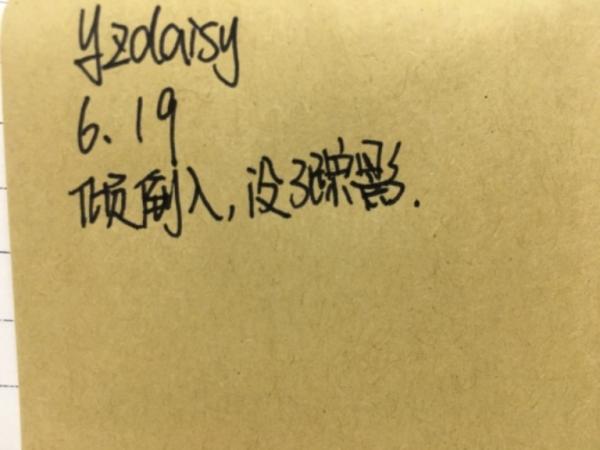 Yzdaisy
6.19
倾倒入，没了踪影.